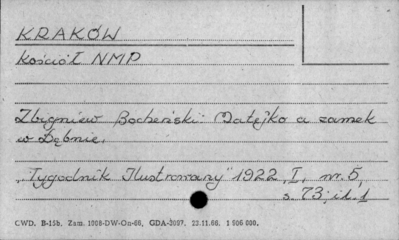 KRAKÓW
Kościół NMP
Zbigniew Bocheński: Matejko a zamek
w Dębnie.
"Tygodnik Ilustrowany" 1922, I, nr. 5,
s. 73; il. 1
CWD. B-15b. Zam. 1008-DW-On-66. GDA-2097. 22.11.66. 1 906 000.